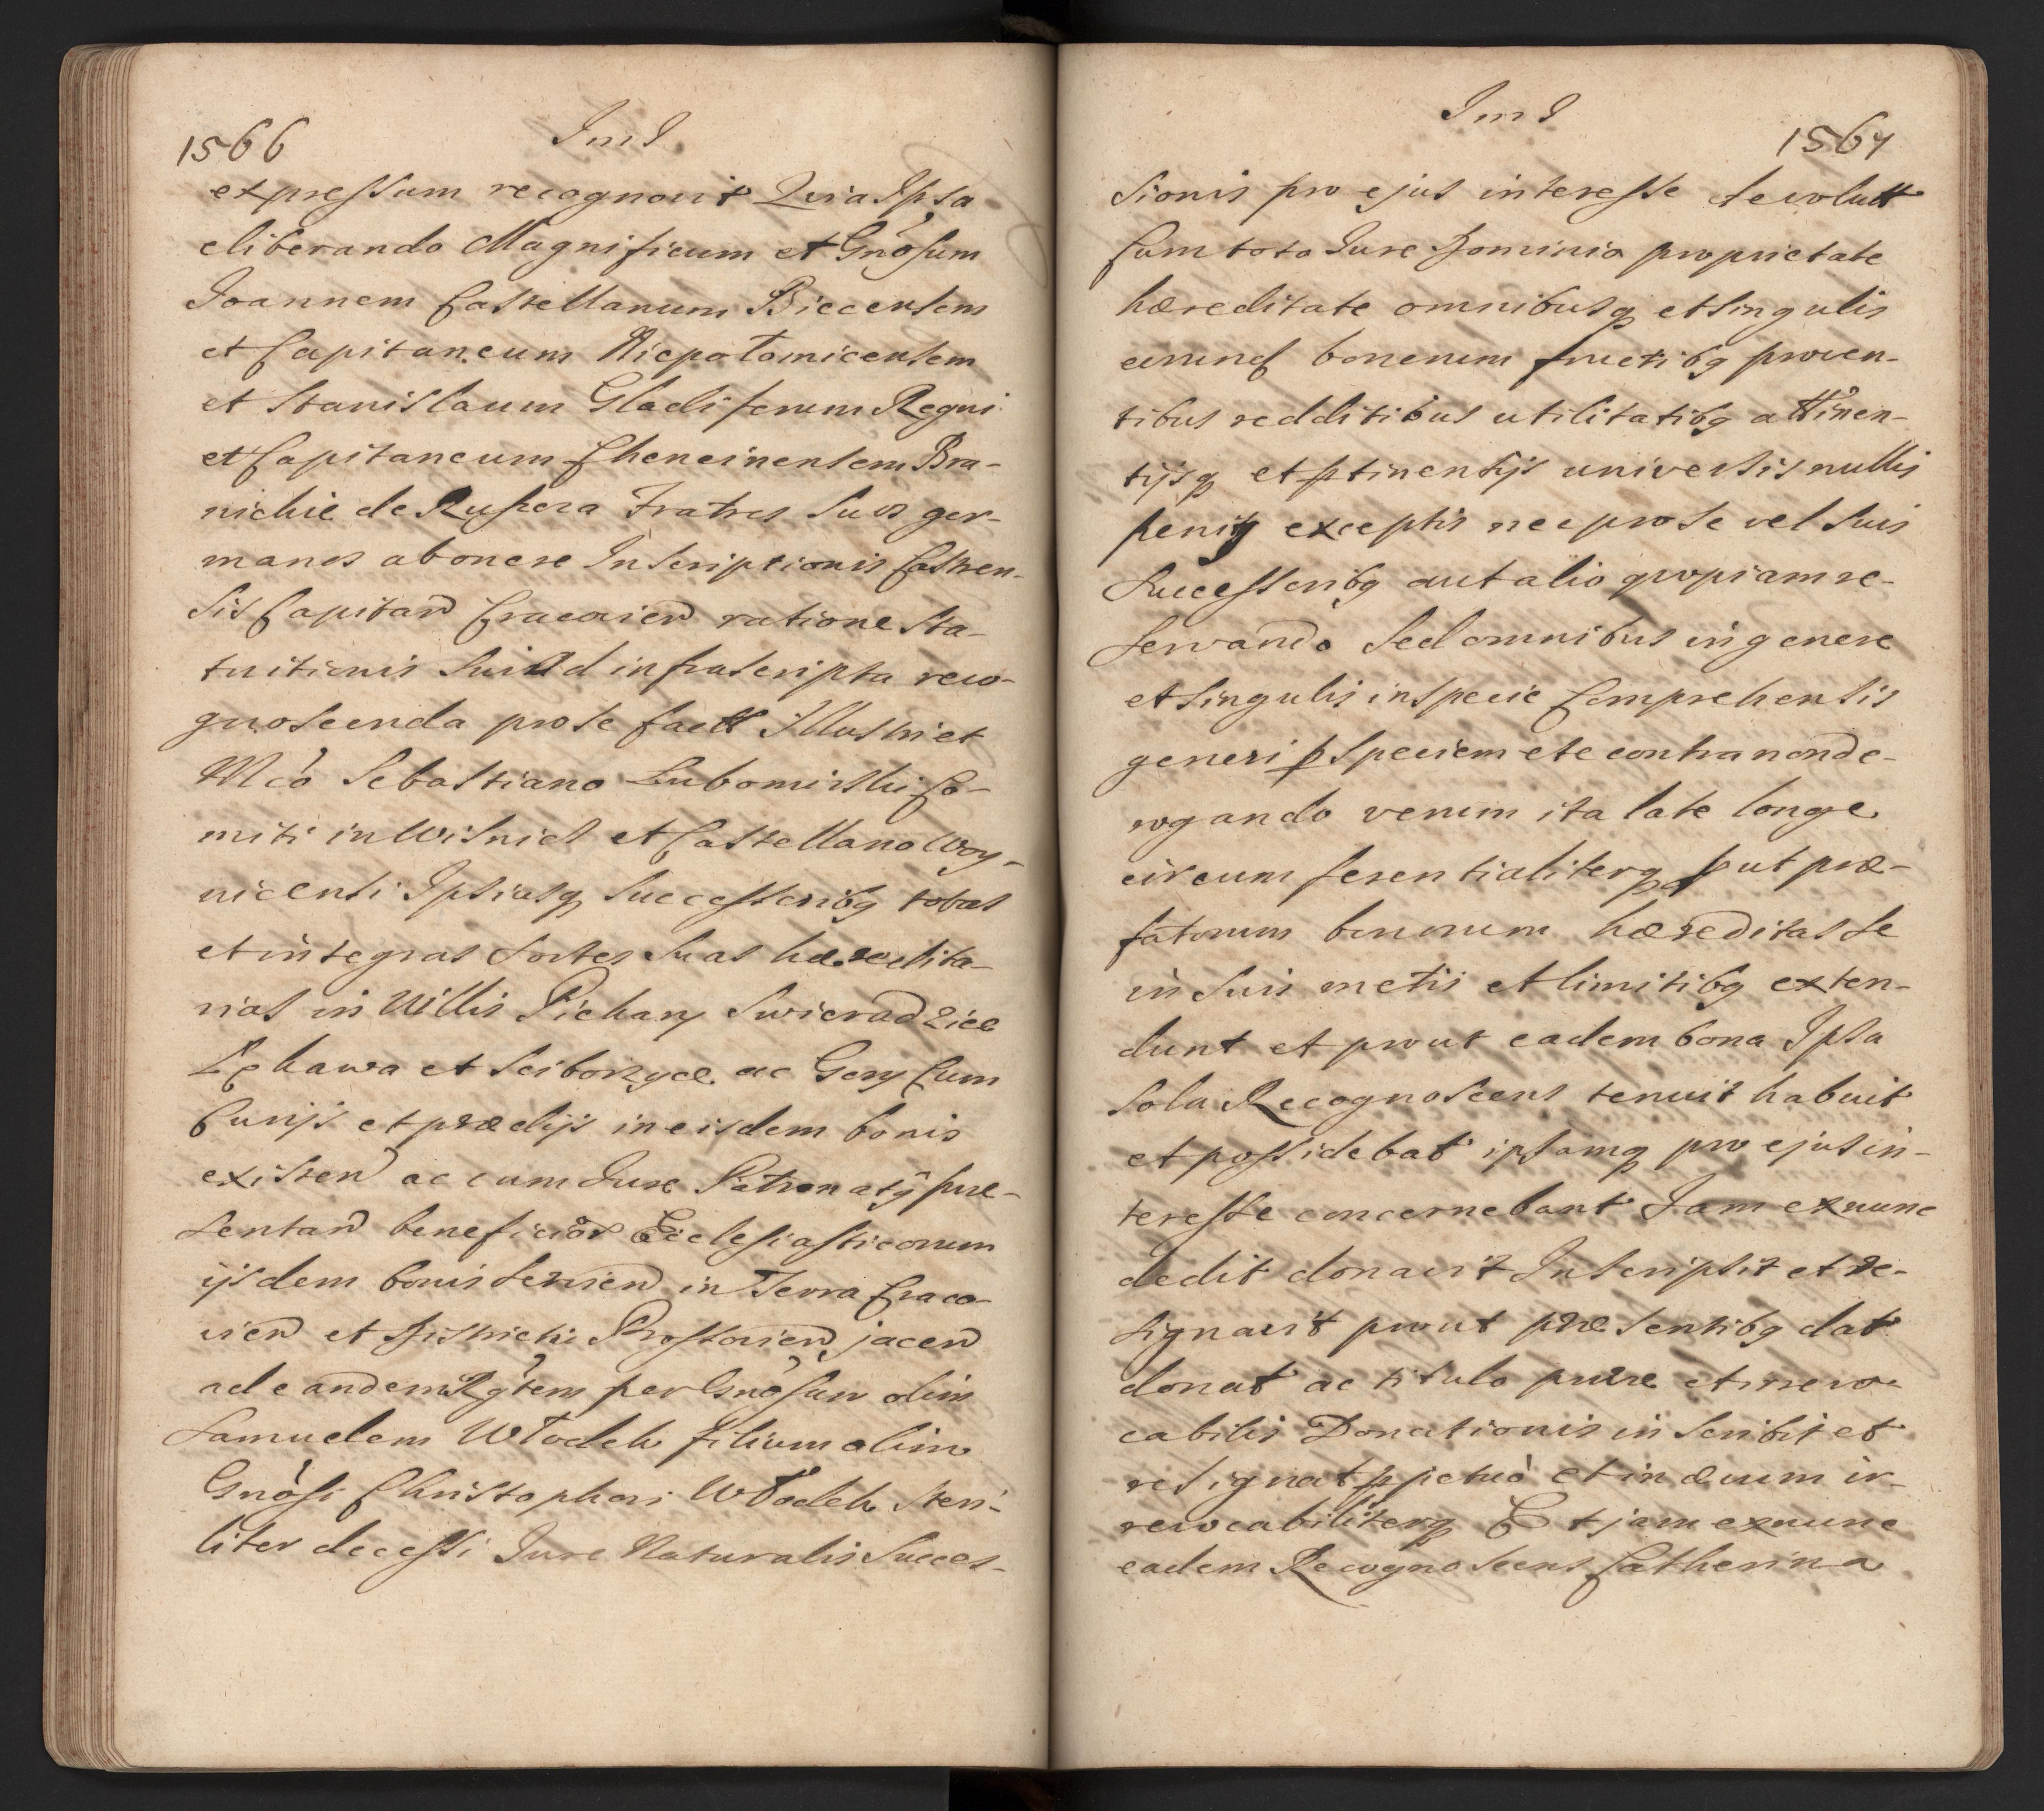 1566
ImI
expressum recognovit Quia Ipsa
eliberando Magnificum et Gnosum
Joannem Castellanum Biecensem
et Capitaneum Niepolomicensem
et Stanislaum Gladiferum Regni
et Capitaneum Chencinensem Bra-
nickie de Ruszcza Fratres Suos ger-
manos ab onere Inscriptionis Castren-
sis Capitan Cracovien ratione Sta-
tuitionis Sui Ad infrascripta reco-
gnoscenda pro se fact Illustri et
Mco Sebastiano Lubomirski Co-
miti in Wisnicz et Castellano Woy-
nicensi Ipsiusq Successoribq totas
et integras Sortes Suas hæredita-
rias in Villis Piekary Swieradzice
Lghawa et Sciborzyce ac Gory Cum
Curijs et prædijs in eisdem bonis
existen ac cum Jure Patronatq præ-
sentan beneficior Ecclesiasticorum
ijsdem bonis servien in Terra Craco-
vien et Districtu Proszovien jacen
ad eandem Rgtem per Gnosum olim
Samuelem Wlodek filium olim
Gnosi Christophori Wlodek Steri-
liter decessi Jure Naturalis Succes-
ImI
1567
sionis pro ejus interesse devolutt
Cum toto Jure Dominio proprietate
hæreditate omnibusq et singulis
eorund bonorum fructibq proven-
tibus redditibus utilitatibq attinen-
tijsq et ptinentijs universis nullis
penitq exceptis nec pro se vel suis
Successoribq aut alio quopiam re-
servando Sed omnibus in genere
et singulis in specie Comprehensis
generi p Speciem et e contra non de-
rogando verum ita late longe
circumferentialiterq put præ-
fatorum bonorum hæreditas se
in suis metis et limitibq exten-
dunt et prout eadem bona Ipsa
sola Recognoscens tenuit habuit
et possidebat ipsamq pro ejus in-
teresse concernebant Jam exnunc
dedit donavit Inscripsit et re-
signavit prout præsentibq dat
donat ac titulo puræ et irrevo-
cabilis Donationis inscribit et
resignat ppetuo et in ævum ir-
revocabiliterq Et jam exnunc
eadem Recognoscens Catherina